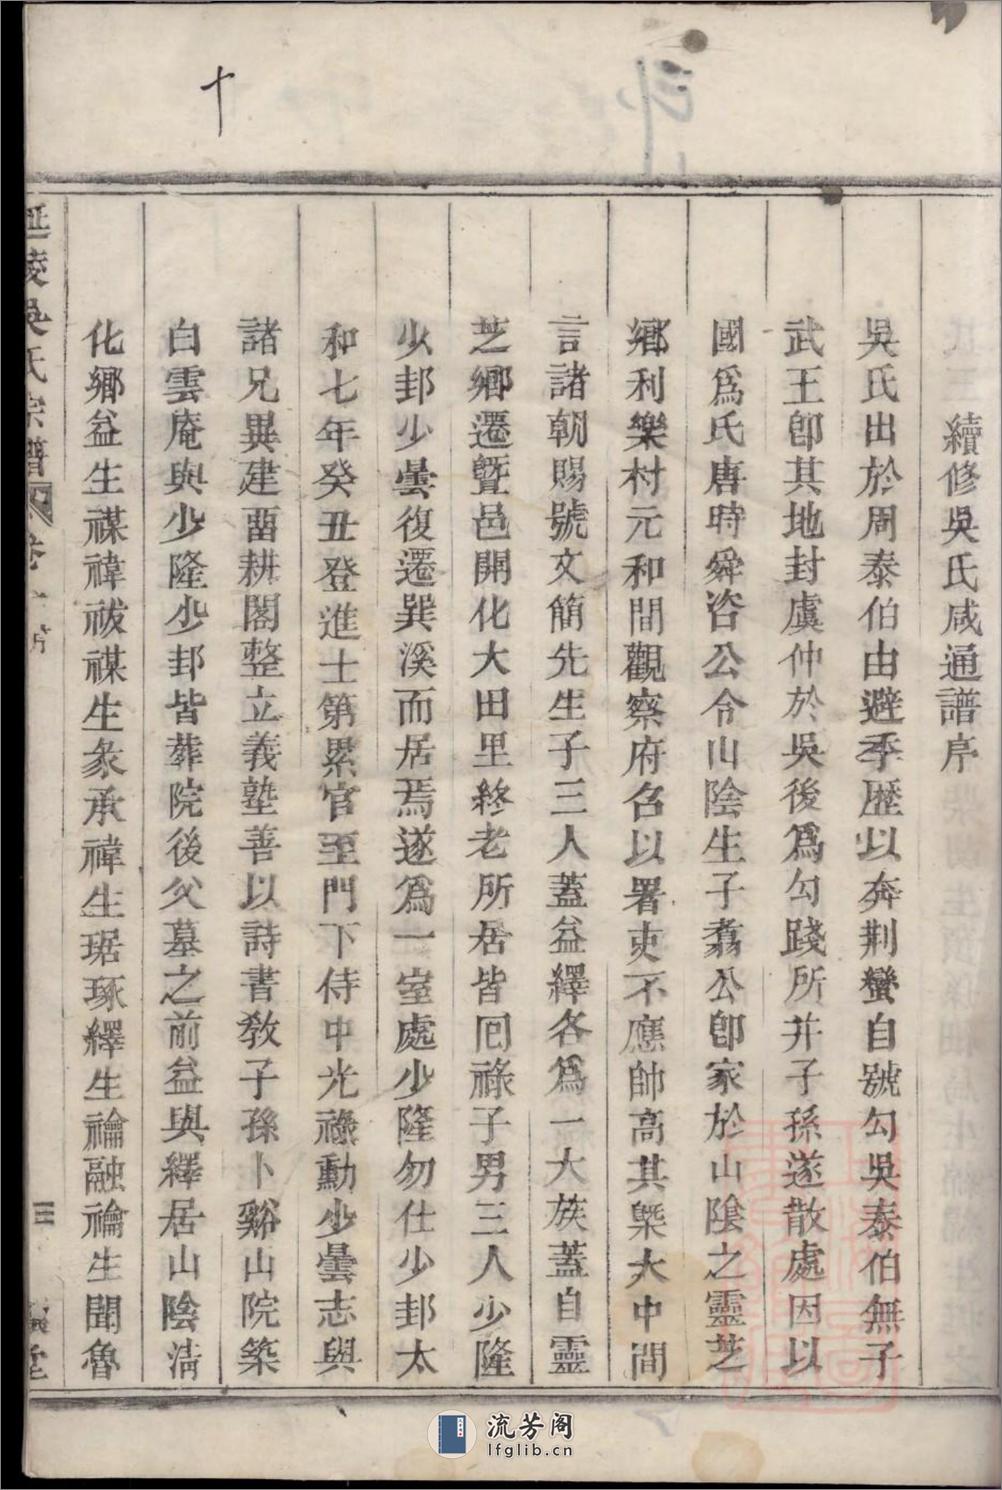 十
續修吳氏咸通譜序
吳氏出於周泰伯由避季歷以奔荆蠻自號勾吳泰伯無子
武王卽其地封虞仲於吳後爲勾踐所并子孫遂散處因以
國爲氏唐時舜咨公令山陰生子翥公卽家於山陰之靈芝
鄉利樂村元和間觀察府召以署吏不應帥高其槩大中間
言諸朝賜號文簡先生子三人蓋益繹各爲一大族蓋自靈
芝鄉遷暨邑開化大田里終老所居皆囘祿子男三人少隆
少邽少曇復遷巽溪而居焉遂爲一室處少隆勿仕少邽太
和七年癸丑登進士第累官至門下侍中光祿勳少曇志與
諸兄異建畱耕閣整立義塾善以詩書敎子孫卜谿山院築
白雲庵與少隆少邽皆葬院後父墓之前益與繹居山陰淸
化鄉益生禖禕祓禖生彖承禕生琚琢繹生禴融禴生聞魯
延陵吳氏宗譜
卷一
三
堂
流芳阁
lfglib.cn